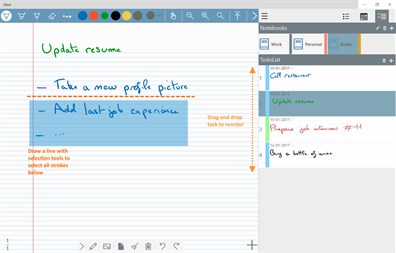 Notebooks
Work
Personal
Guide
TodoList
Update resume
- Take a new profile picture
- Add last job experience
- ...
Draw a line with
selection tools to
select all strokes
below
Drag and drop
task to reorder
1
Call restaurant
2
Update resume
3
Prepare job interview #11
4
Buy a bottle of wine
1
1